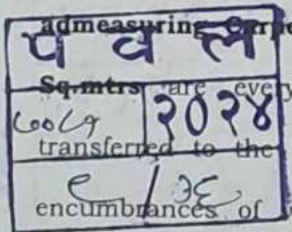 admeasuring Carpe
प व ल
Sq.mtrs are every
२०२४
transferred to the
/ ३६
encumbrances of